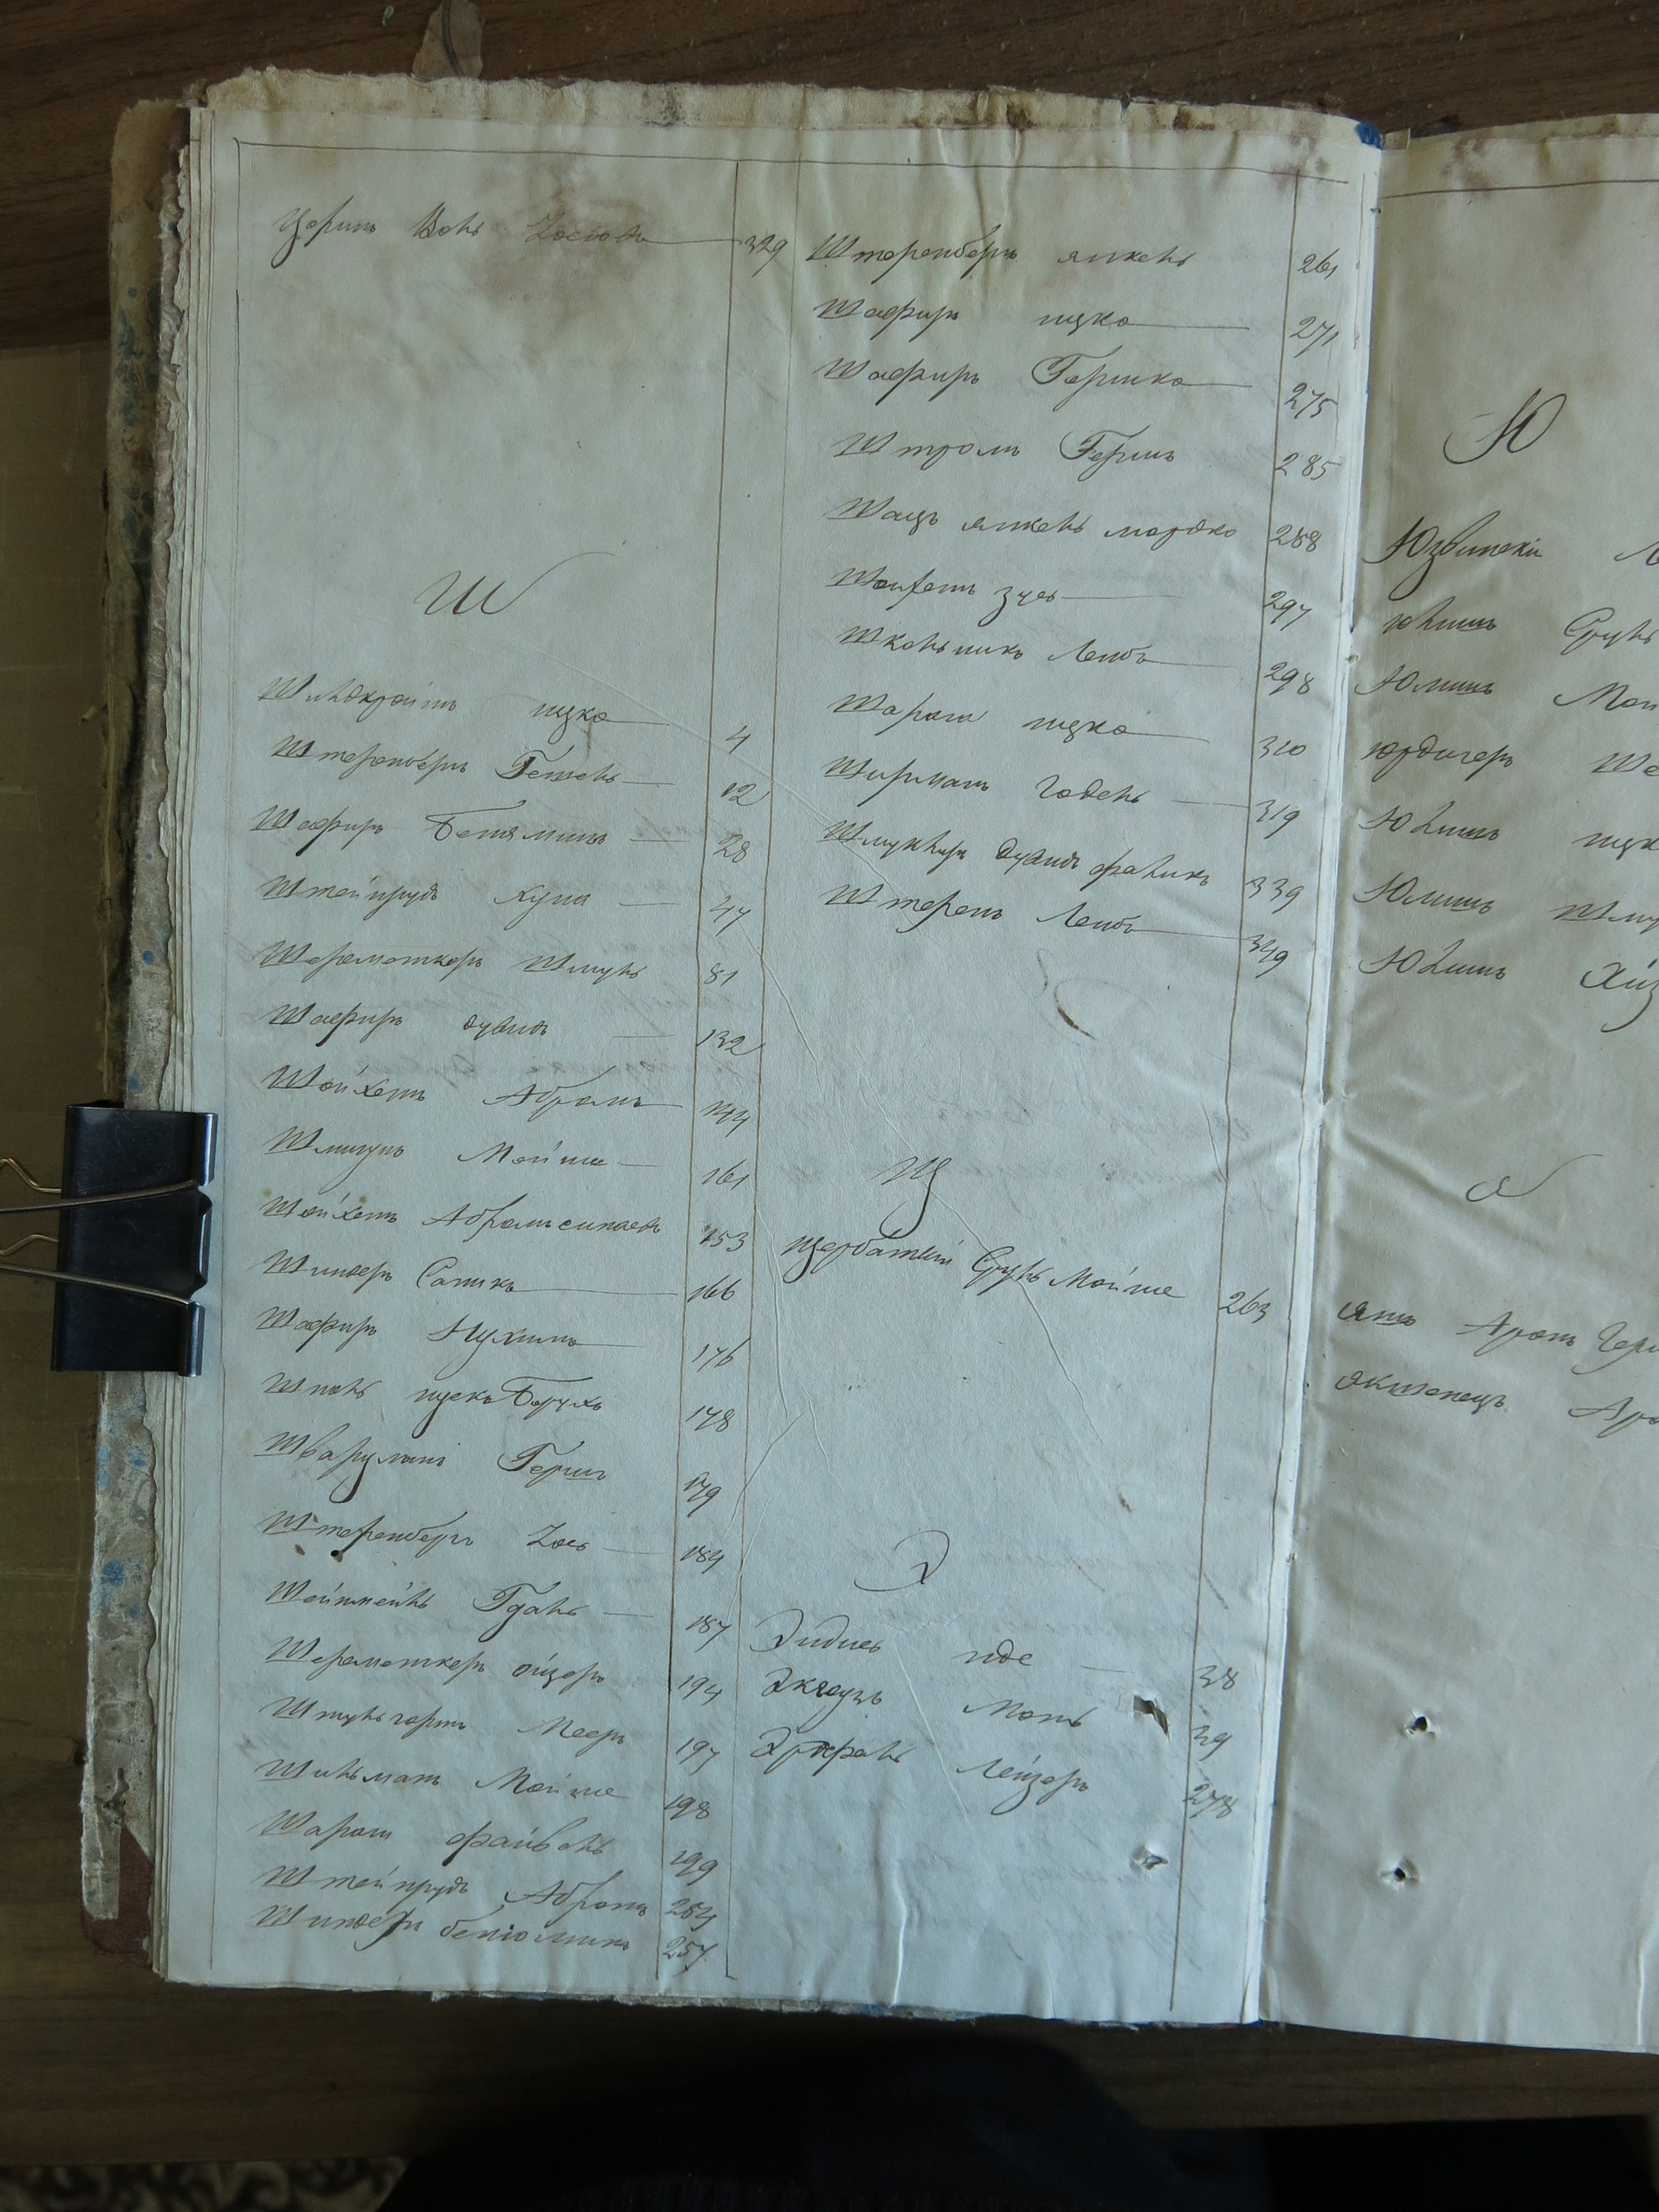 Цорин Вольъ Зосювъ 329
Ш
Шильдкройтъ ицко 4
Штеренберъ Гешель 12
Шафиръ Бенямин 28
Штейнрудъ куна 47
Шераметкеръ Шмуль 81
Шафиръ дувидъ 132
Шойхетъ Абрамъ 144
Шмигунъ Мойше 161
Шойхетъ Абрамъ 153
Шиндеръ Саникъ 166
Шафиръ Нухимъ 176
Шполь ицекъ Борухъ 178
Шварцманъ Гершъ 179
Штеренберъ Зось 184
Шейнфейнъ Гдаль 187
Шераметкеръ ойзеръ 194
Мееръ 197
Шильманъ Мойше 198
Шарагъ файвель 199
Штейнрудъ Абрамъ 254
Шиндеръ бениоминъ 257
Штеренберъ янкель 261
Шафиръ ицко 271
Шафиръ Гершко 275
Штромъ Гершъ 285
Шацъ янкель мордко 288
Шойхетъ зусь 297
Школьникъ Лейбъ 298
Шарага ицко 310
Ширманъ Годель 319
Шмуклиръ дувидъ фаликъ 339
Штеренъ Лейбъ 349
Щ
Щербатый Сруль Мойше 263
Э
Эидись иде 38
Экгаузъ Мотъ 39
Эфраль Лейзеръ 278
Ю
Юзвинскiй
Юлишъ Сруль
Юлишъ Мой
юрдигеръ Ше
Юлишъ ицк
Юлишъ Шму
Юлишъ Хиз
Я
янъ Аронъ Гер
якименецъ Аро